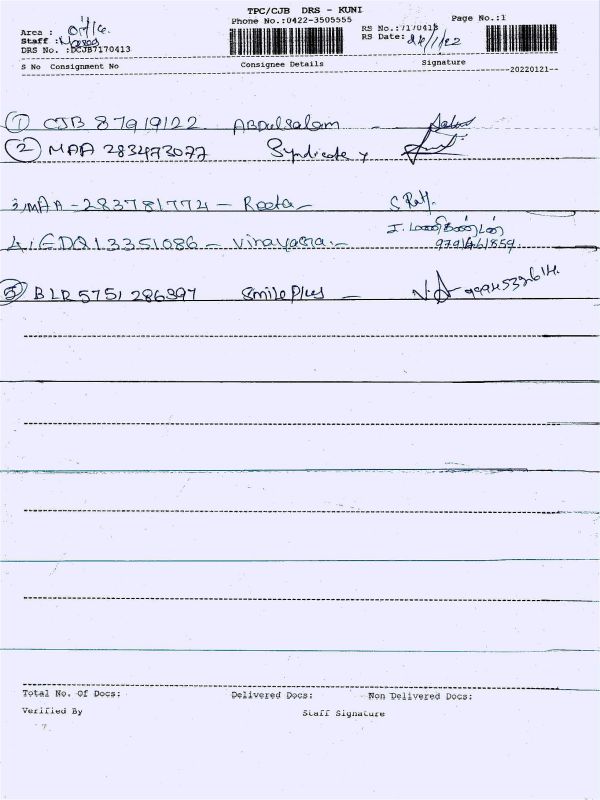 TPC/CJB DRS - KUNI
Phone No.:0422-3505555
Page No.:1
Area :
RS No.:7170413
Staff :
RS Date: 22/1/22
DRS No. :DCJB7170413
S No Consignment No Consignee Details Signature
20220121
1 CJB 87919122 ABDULSALAM -
2 MAA 283473077 Syndicate y
3. MAA - 283781774 - Reeta -
4. GDQ 13351086 - Vinayaga -
I. மணிகண்டன்
9791461859
5 BLR 5751286397 Smile Plus - 9994533614
Total No. Of Docs: Delivered Docs: Non Delivered Docs:
Verified By Staff Signature